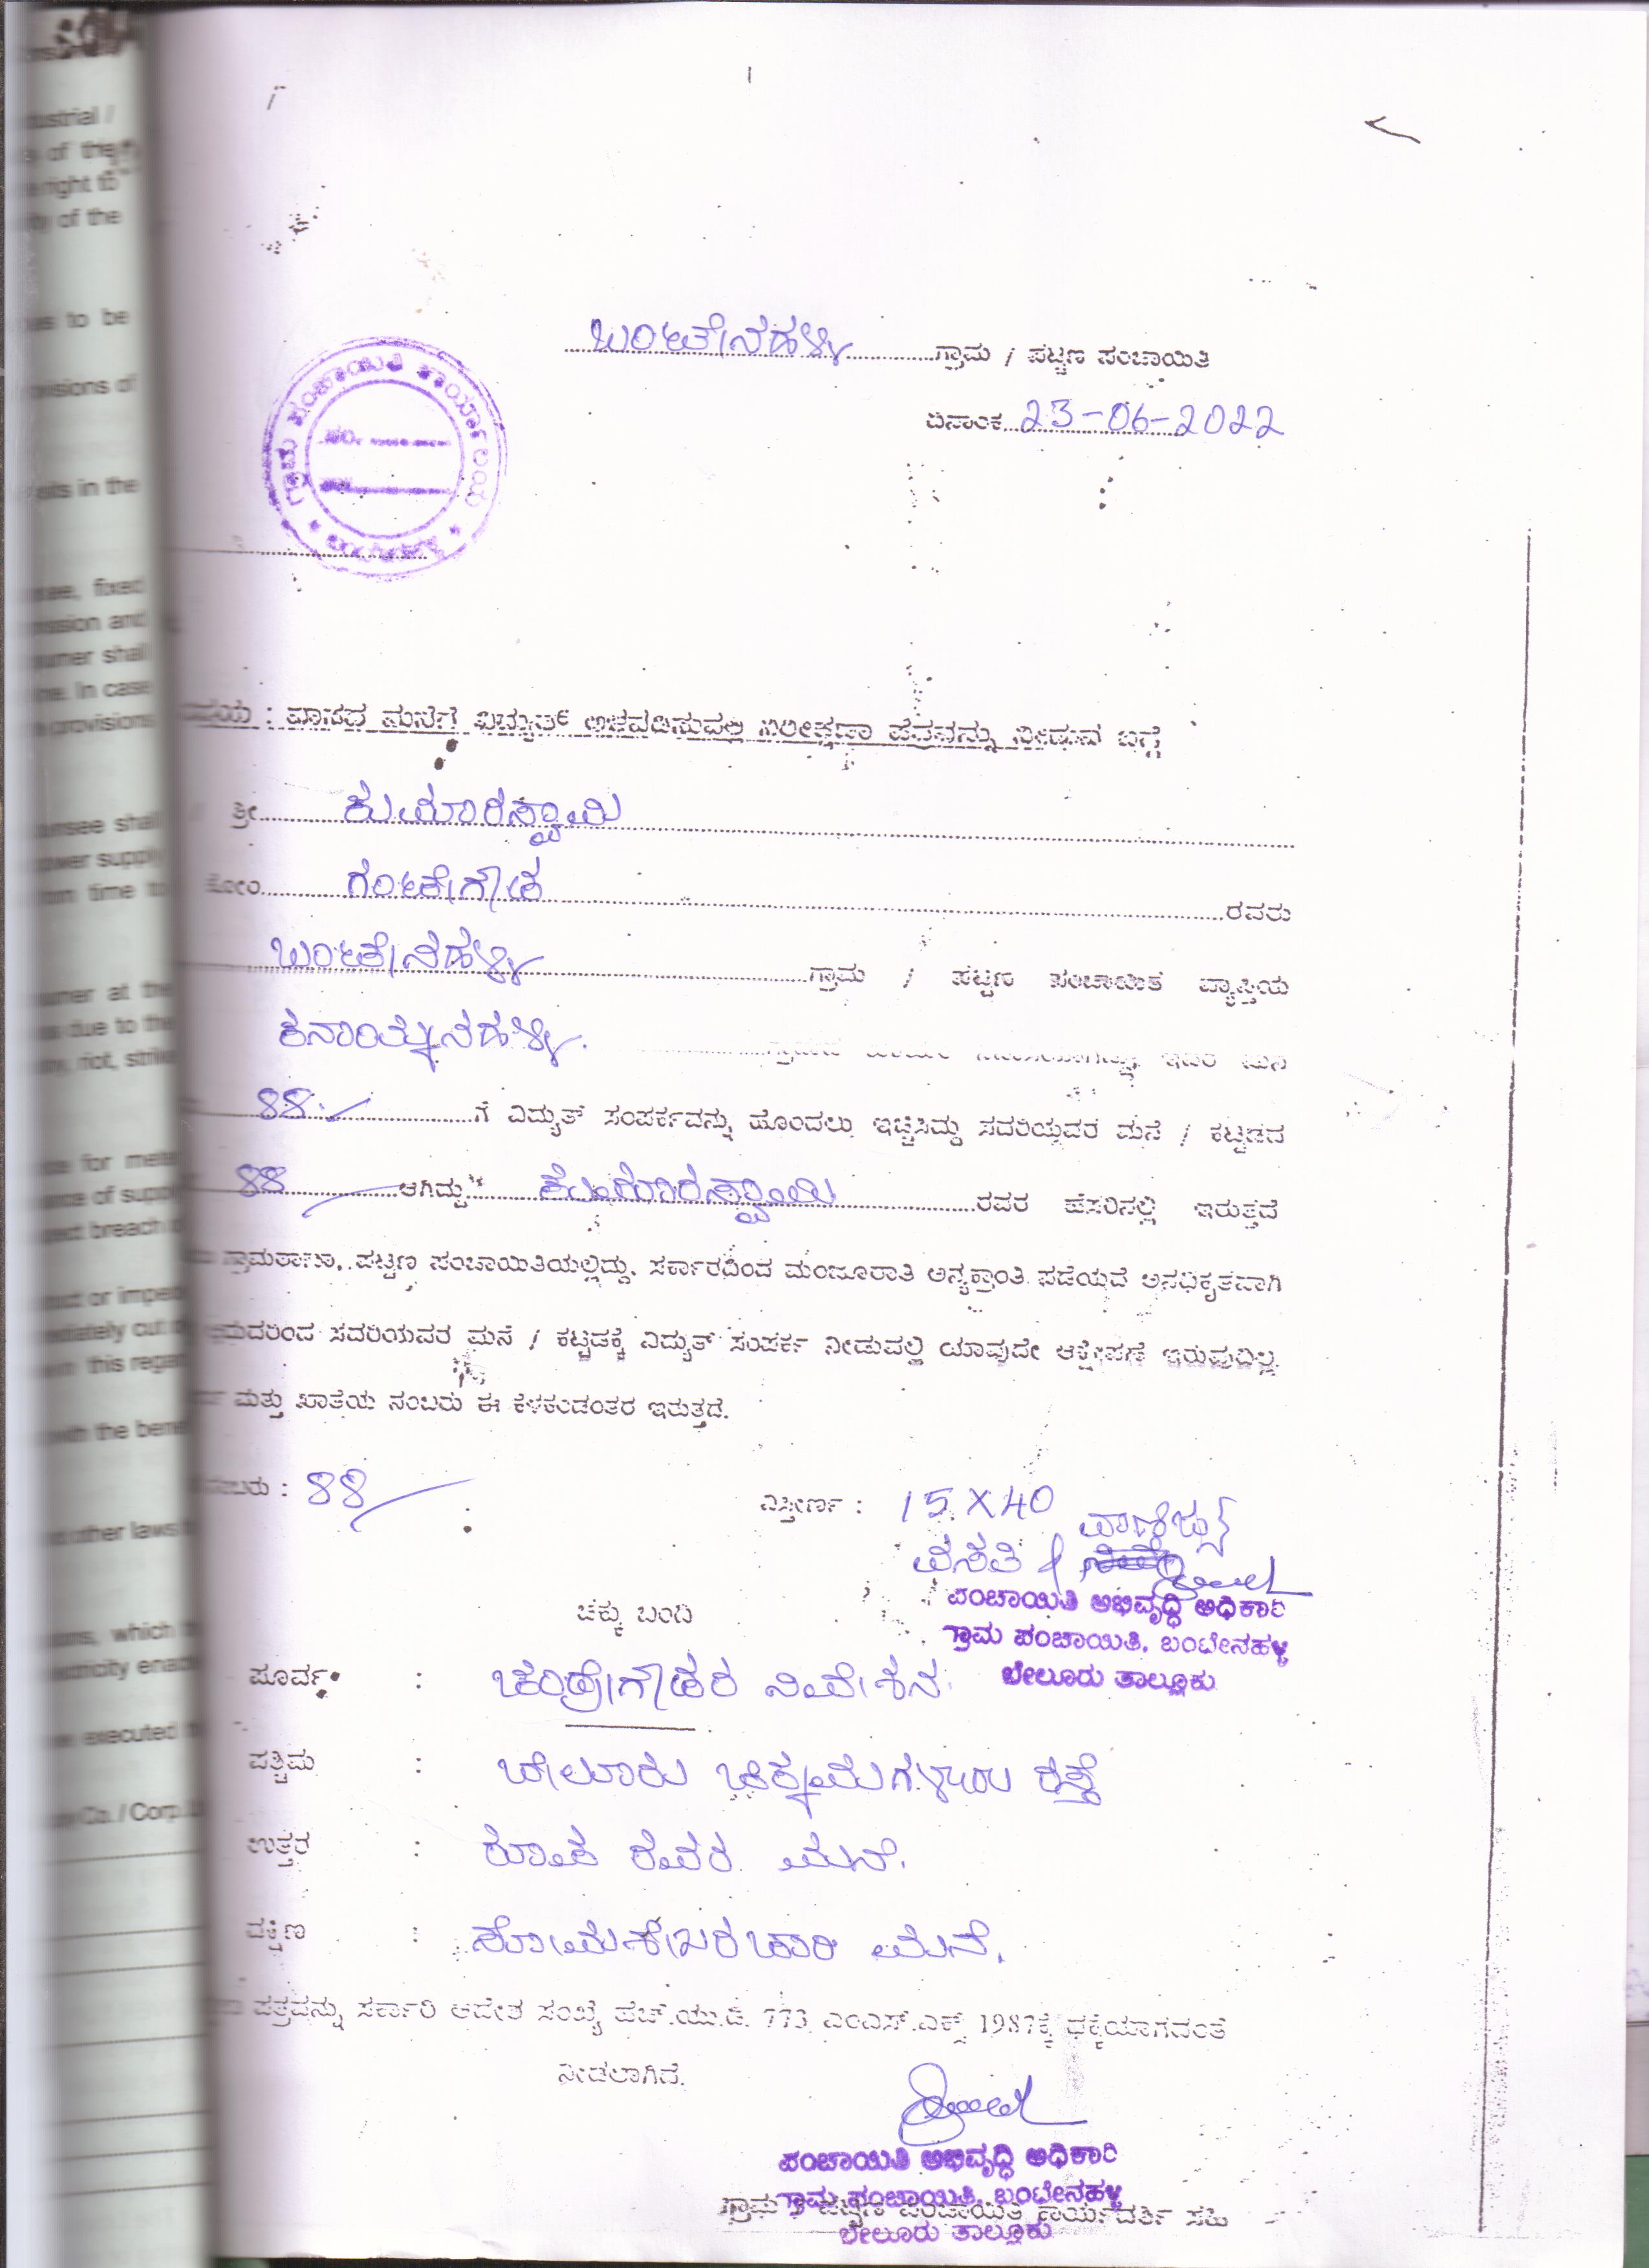 dustrial /
of the
right to
ity of the
to be
visions of
in the
fixed
ssion and
umer shall
In case
provisions
nsee shall
ower supply
time to
umer at the
due to the
riot, strike
for mete
ance of supp
breach
or imped
ediately cut
this regar
with the bene
other laws
ons, which
ectricity enac
executed
Co. / Corp.
ಬಂಟೇನಹಳ್ಳಿ ಗ್ರಾಮ / ಪಟ್ಟಣ ಪಂಚಾಯಿತಿ
ದಿನಾಂಕ 23-06-2022
ಗ್ರಾಮ ಪಂಚಾಯಿತಿ ಕಾರ್ಯಾಲಯ
ವಾಸದ ಮನೆಗೆ ವಿದ್ಯುತ್ ಅಳವಡಿಸುವಲ್ಲಿ ನಿರೀಕ್ಷಣಾ ಪತ್ರವನ್ನು ನೀಡುವ ಬಗ್ಗೆ
ಶ್ರೀ ಕುಮಾರಸ್ವಾಮಿ
ಕೋಂ ಗಂಟೇಗೌಡ ರವರು
ಬಂಟೇನಹಳ್ಳಿ ಗ್ರಾಮ / ಪಟ್ಟಣ ಪಂಚಾಯಿತಿ ವ್ಯಾಪ್ತಿಯ
ಕನಾಯ್ಕನಹಳ್ಳಿ. ಇವರ ಮನೆ
88 ಗೆ ವಿದ್ಯುತ್ ಸಂಪರ್ಕವನ್ನು ಹೊಂದಲು ಇಚ್ಛಿಸಿದ್ದು ಸದರಿಯವರ ಮನೆ / ಕಟ್ಟಡದ
88 ಆಗಿದ್ದು ಕುಮಾರಸ್ವಾಮಿ ರವರ ಹೆಸರಿನಲ್ಲಿ ಇರುತ್ತದೆ
ಗ್ರಾಮಠಾಣಾ, ಪಟ್ಟಣ ಪಂಚಾಯಿತಿಯಲ್ಲಿದ್ದು, ಸರ್ಕಾರದಿಂದ ಮಂಜೂರಾತಿ ಅನ್ಯಕ್ರಾಂತಿ ಪಡೆಯದೆ ಅನಧಿಕೃತವಾಗಿ
ಸದರಿಯವರ ಮನೆ / ಕಟ್ಟಡಕ್ಕೆ ವಿದ್ಯುತ್ ಸಂಪರ್ಕ ನೀಡುವಲ್ಲಿ ಯಾವುದೇ ಆಕ್ಷೇಪಣೆ ಇರುವುದಿಲ್ಲ.
ಮತ್ತು ಖಾತೆಯ ನಂಬರು ಈ ಕೆಳಕಂಡಂತರ ಇರುತ್ತದೆ.
ನಂಬರು : 88 ವಿಸ್ತೀರ್ಣ : 15 X 40
ವಾಣಿಜ್ಯ
ವಸತಿ /
ಪಂಚಾಯಿತಿ ಅಭಿವೃದ್ಧಿ ಅಧಿಕಾರಿ
ಚಕ್ಕು ಬಂದಿ
ಗ್ರಾಮ ಪಂಚಾಯಿತಿ, ಬಂಟೇನಹಳ್ಳಿ
ಬೇಲೂರು ತಾಲ್ಲೂಕು
ಪೂರ್ವ : ಚಂದ್ರೇಗೌಡರ ನಿವೇಶನ
ಪಶ್ಚಿಮ : ಬೇಲೂರು ಚಿಕ್ಕಮಗಳೂರು ರಸ್ತೆ
ಉತ್ತರ : ರವರ ಮನೆ.
ದಕ್ಷಿಣ : ಸೋಮಶೇಖರಚಾರಿ ಮನೆ.
ಪತ್ರವನ್ನು ಸರ್ಕಾರಿ ಆದೇಶ ಸಂಖ್ಯೆ ಹೆಚ್.ಯು.ಡಿ. 773 ಎಂಎಸ್.ಎಕ್ಸ್ 1987ಕ್ಕೆ ಧಕ್ಕೆಯಾಗದಂತೆ
ನೀಡಲಾಗಿದೆ.
ಪಂಚಾಯಿತಿ ಅಭಿವೃದ್ಧಿ ಅಧಿಕಾರಿ
ಗ್ರಾಮ ಪಂಚಾಯಿತಿ, ಬಂಟೇನಹಳ್ಳಿ
ಗ್ರಾಮ / ಪಟ್ಟಣ ಪಂಚಾಯಿತಿ ಕಾರ್ಯದರ್ಶಿ ಸಹಿ
ಬೇಲೂರು ತಾಲ್ಲೂಕು